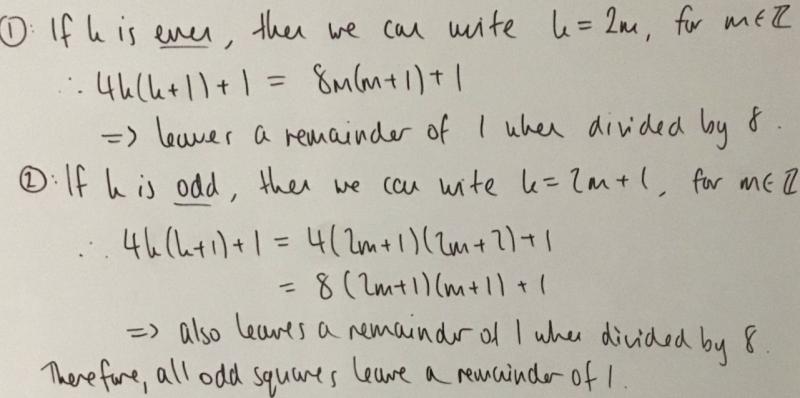 ①: If k is even, then we can write k = 2m, for m ∈ ℤ
∴ 4k(k+1)+1 = 8m(m+1)+1
=> leaves a remainder of 1 when divided by 8.
②: If k is odd, then we can write k = 2m+1, for m ∈ ℤ
∴ 4k(k+1)+1 = 4(2m+1)(2m+2)+1
= 8(2m+1)(m+1)+1
=> also leaves a remainder of 1 when divided by 8.
Therefore, all odd squares leave a remainder of 1.